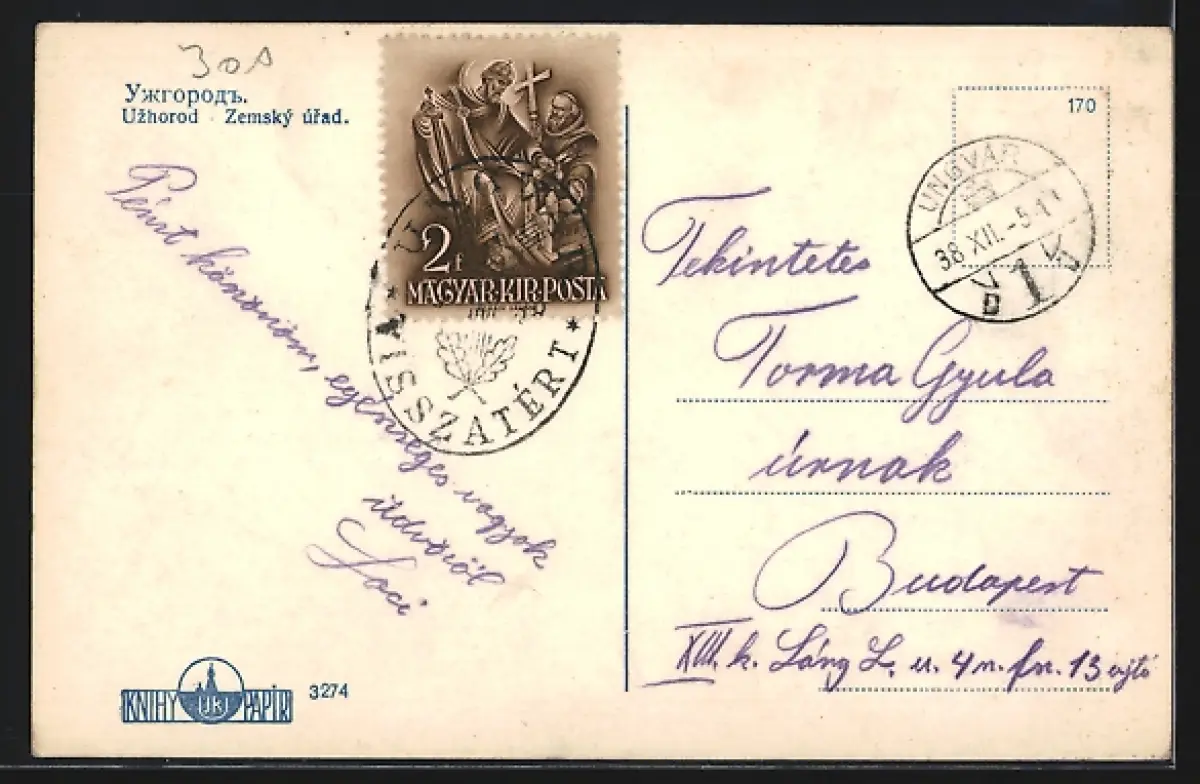 30
Ужгородъ.
Užhorod · Zemský úřad.
Pénzt köszönöm, egészséges vagyok
üdvözöl
Laci
2f
MAGYAR·KIR·POSTA
VISSZATÉRT
KNIHY JKJ PAPÍR
3274
170
UNGVÁR
38 XII. -5
1
Tekintetes
Torma Gyula
úrnak
Budapest
XIII. k. Láng L. u. 4 n. fn. 13 ajtó